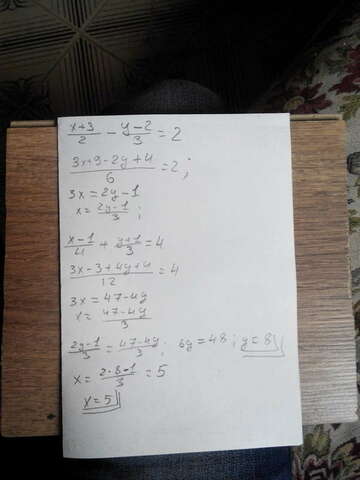 (x+3)/2 - (y-2)/3 = 2
(3x+9-2y+4)/6 = 2;
3x = 2y-1
x = (2y-1)/3;
(x-1)/4 + (y+1)/3 = 4
(3x-3+4y+4)/12 = 4
3x = 47-4y
x = (47-4y)/3
(2y-1)/3 = (47-4y)/3; 6y = 48; y = 8
x = (2·8-1)/3 = 5
x = 5